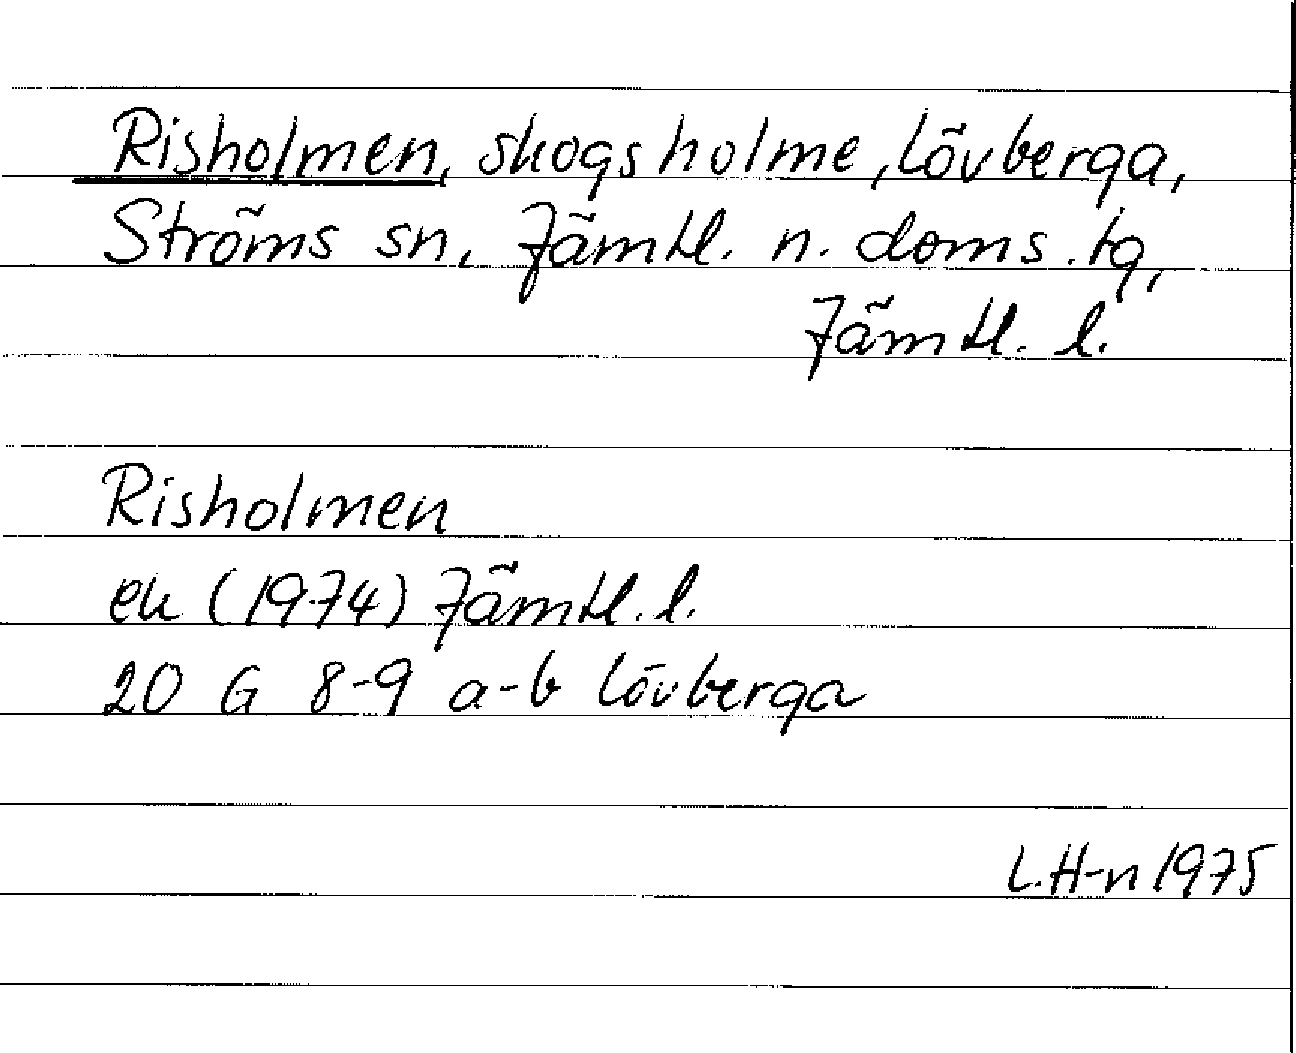 Risholmen, skogsholme, Lövberga,
Ströms sn, Jämtl. n. doms.tg,
Jämtl. l.
Risholmen
ek (1974) Jämtl. l.
20 G 8-9 a-b Lövberga
L.H-n 1975